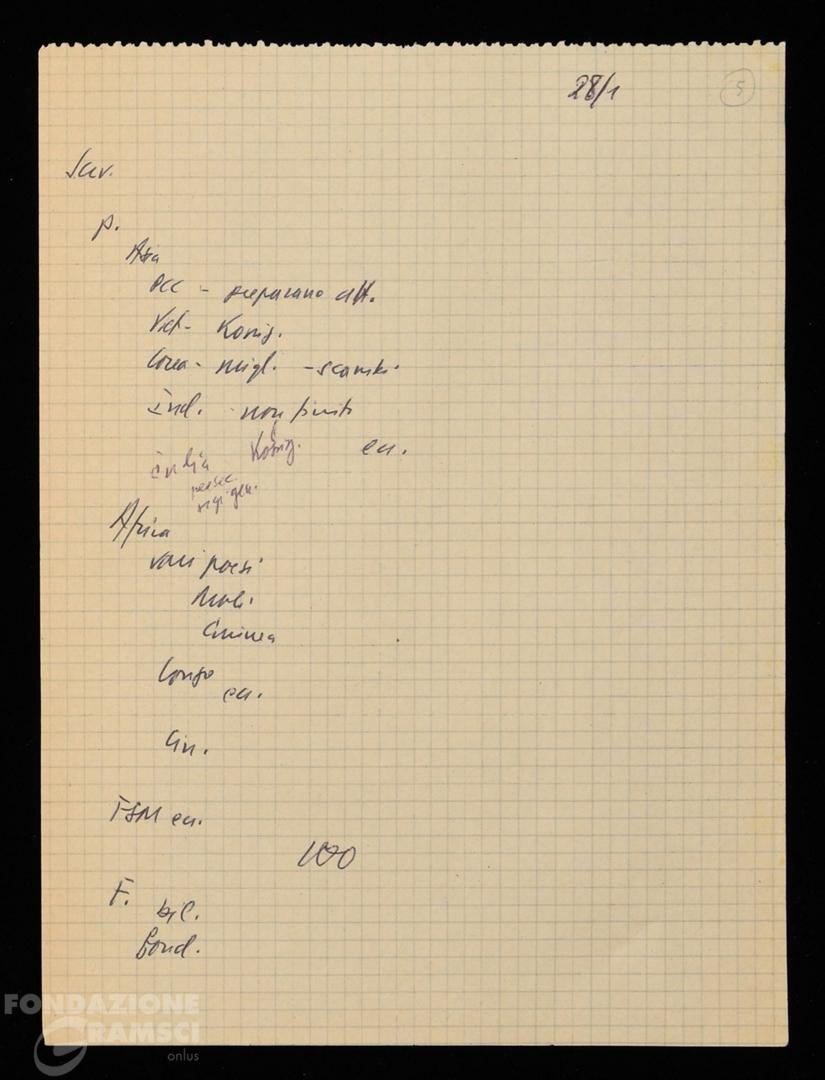 28/1 5
Scv.
p.
Asia
PCC - preparano att.
Viet - Konig.
Corea - migl. - scambi
Ind. non finito
India Konig. ec.
Africa
vari paesi
Mali
Guinea
Congo
ec.
Cin.
FSM ec.
F.
bil.
fond.
FONDAZIONE
GRAMSCI
onlus